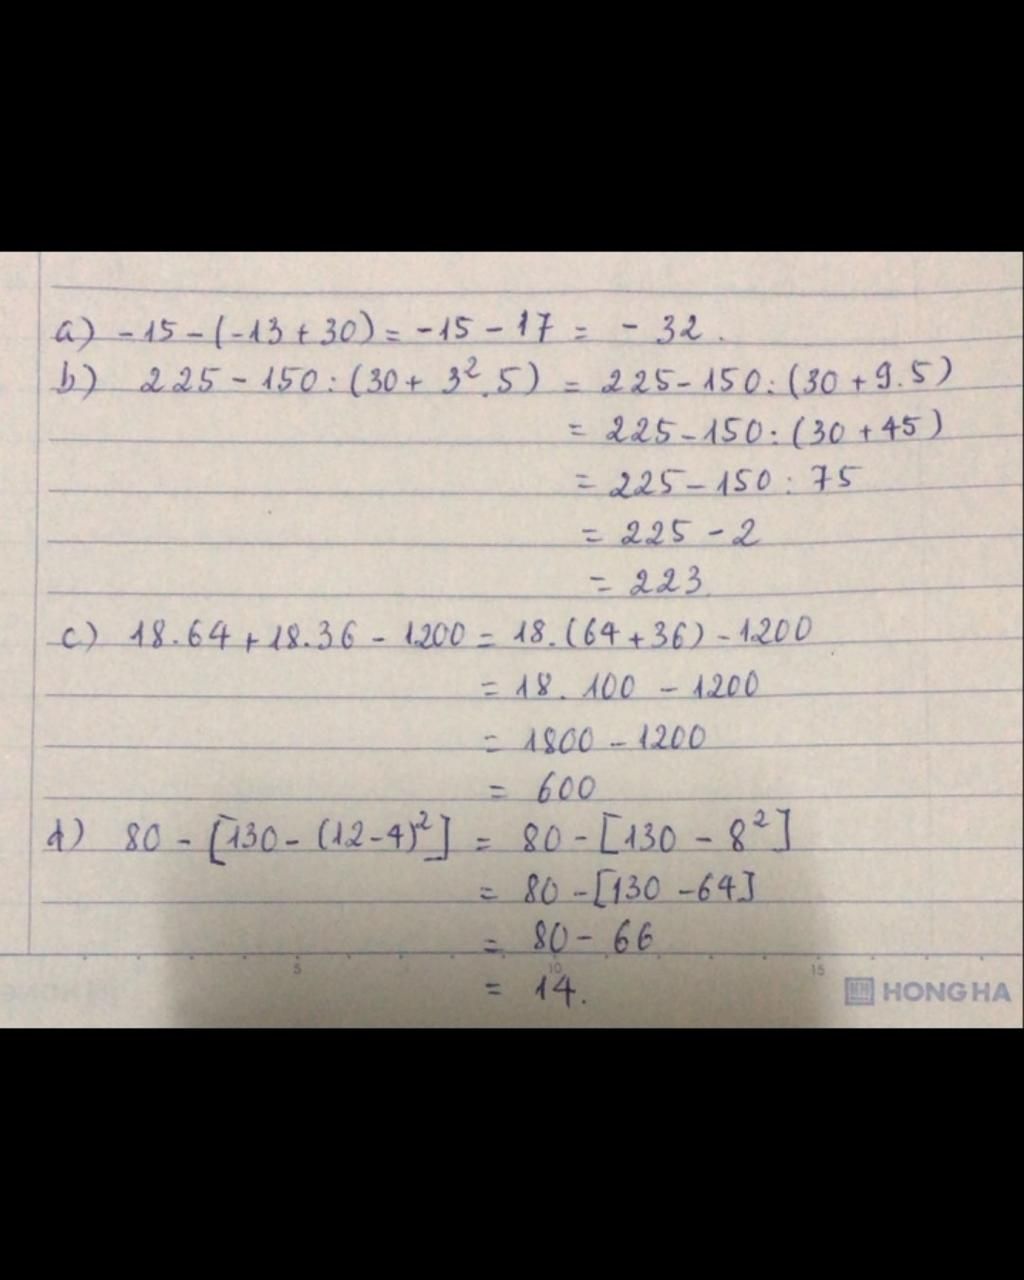 a) -15 - (-13 + 30) = -15 - 17 = - 32.
b) 225 - 150 : (30 + 3² . 5) = 225 - 150 : (30 + 9.5)
= 225 - 150 : (30 + 45)
= 225 - 150 : 75
= 225 - 2
= 223
c) 18.64 + 18.36 - 1200 = 18.(64 + 36) - 1200
= 18. 100 - 1200
= 1800 - 1200
= 600
d) 80 - [130 - (12-4)²] = 80 - [130 - 8²]
= 80 - [130 - 64]
= 80 - 66
= 14.
5 10 15
HH HONG HA